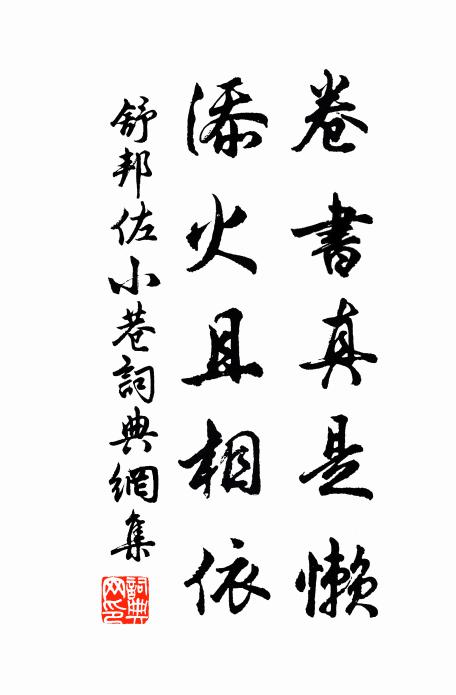 卷書真是懶
添火且相依
舒邦佐小巷詞典網集
詞典網印